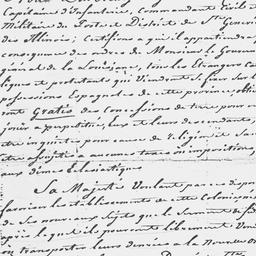 Capitaine d'Infanterie, Commandant Civil et
Militaire du Poste et District de Ste Genevi
des Illinois; Certifions a qui il appartiendra
consequence des ordres de Monsieur le Gouver
general de la Louisiane, tous les Etrangers Ca
liques et protestants qui Viendront S. fixer Sur l
possessions Espagnoles de cette province, obtien
ront Gratis des Concessions de terre pour en
jouir a perpetuité, Eux et leurs descendants,
etre inquietés pour cause de Religion et San
etre assujetis a aucunes taxes ou impositions,
aux dimes Eclesiastiques
Sa Majesté Voulant par ces disp
favoriser les Etablissements de cette Colonie,
de Ses nouveaux Sujets que le Serment de fi
après le quel ils pourront librement Ven
ou transporter leurs denrées a la Nouvelle Or